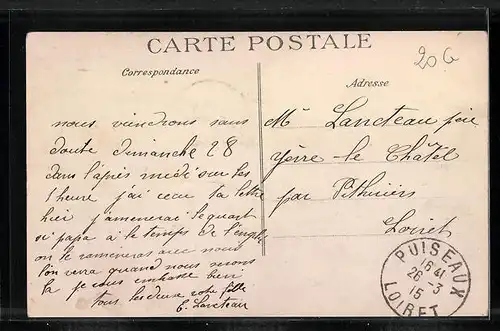 CARTE POSTALE
206
Correspondance
Adresse
nous viendrons sans
doute dimanche 28
dans l'après midi sur les
1 heure j'ai recu ta lettre
hier j'amenerai le quart
si papa à le temps de
on le ramenerai avec nous
l'on vera quand nous irons
la je vous embrasse bien
tous les deux votre fille
E. Lancteau
Mr Lancteau père
Yèvre-le-Châtel
par Pithiviers
Loiret
PUISEAUX
16 41
26 -3
15
LOIRET